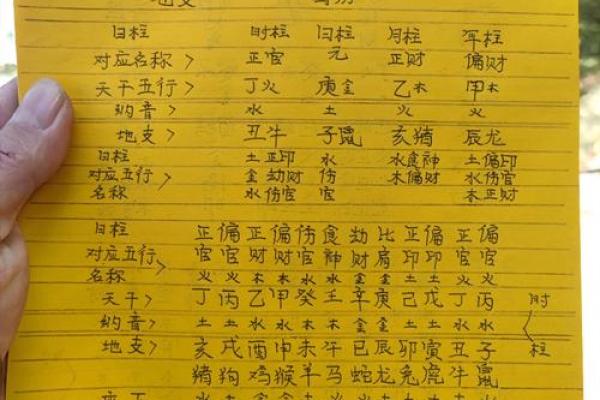 地支
日柱 时柱 日柱 月柱 年柱
对应名称> 正官 元 正财 偏财
天干五行> 丁火 庚金 乙木 甲木
纳音> 水 土 火 火
地支> 丑牛 子鼠 亥猪 辰龙
日柱 土正印 水 水食神 土偏印
对应五行> 金劫财 伤 木偏财 水伤官
名称 水伤官 官 木正财
日柱 正偏正偏伤食劫比正偏正偏
对应五行> 官官财财官神财肩印印官官
名称 火火木木水水金金土土火火
天干> 丁丙乙甲癸壬辛庚己戊丁丙 时
纳音> 土土水水木木金金土土水水
地支> 亥戌酉申未午巳辰卯寅丑子 柱
猪狗鸡猴羊马蛇龙兔虎牛鼠